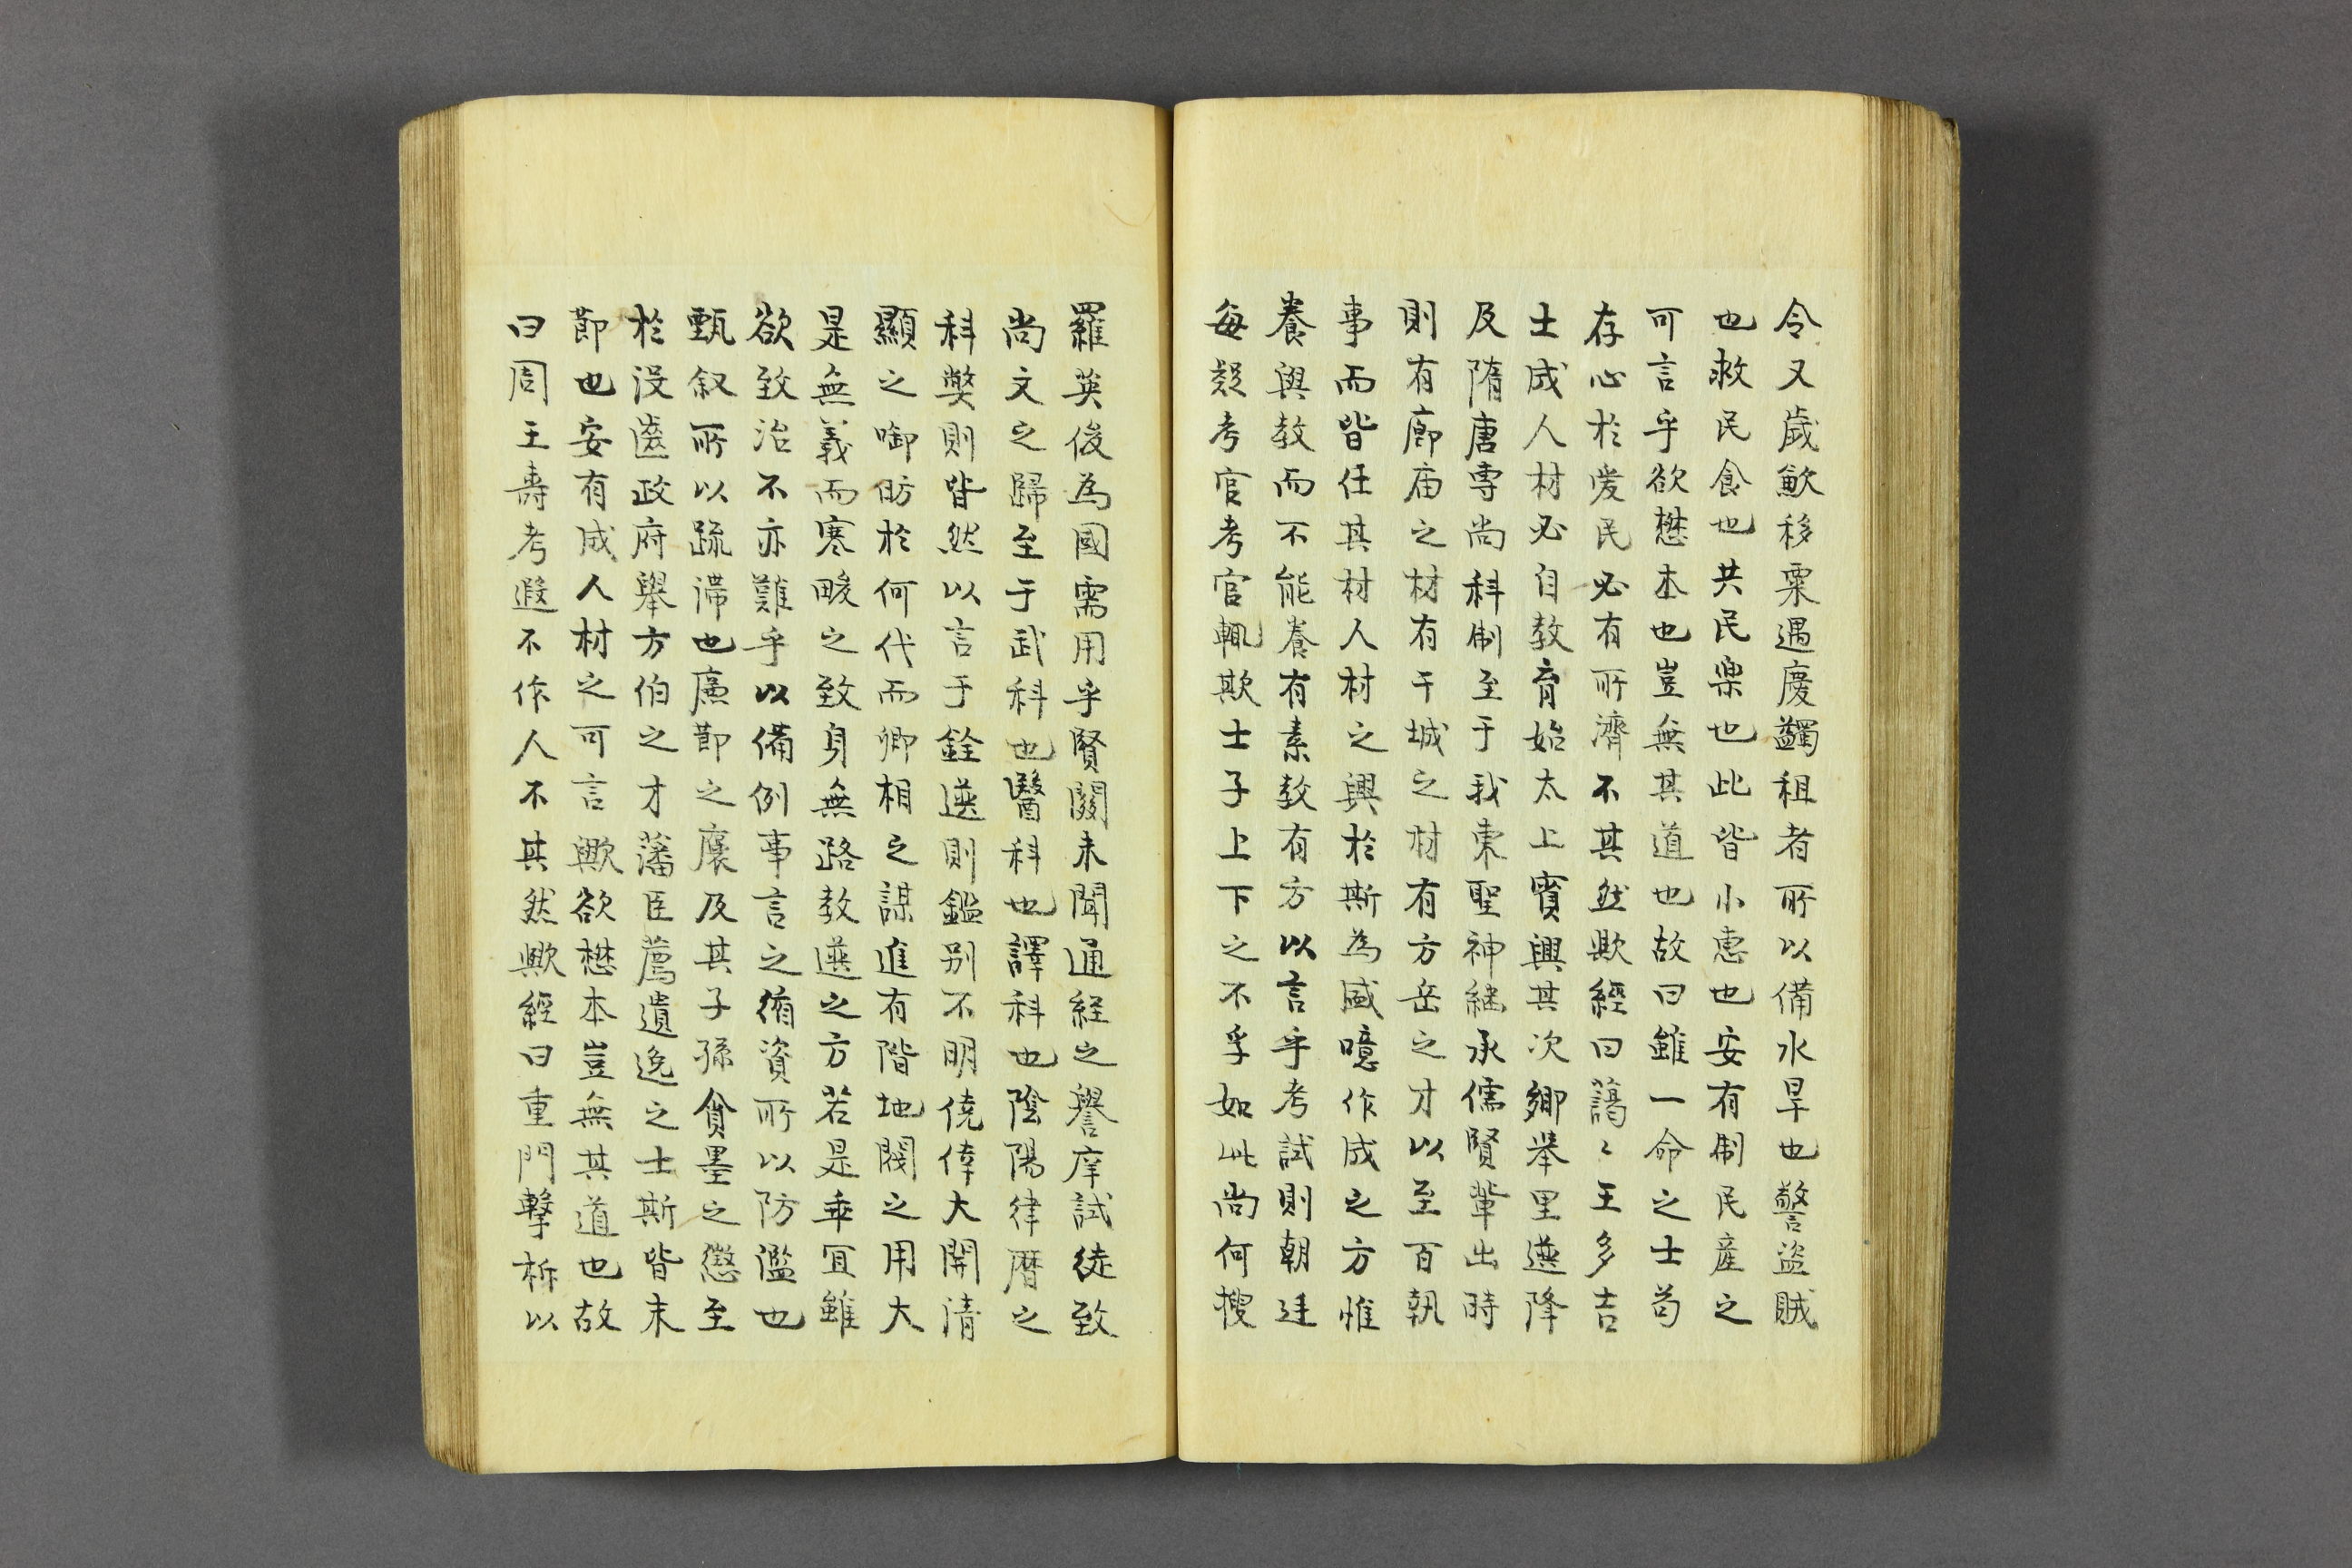 令又歲歉移粟遇慶蠲租者所以備水旱也警盜賊
也救民食也共民樂也此皆小惠也安有制民產之
可言乎欲懋本也豈無其道也故曰雖一命之士苟
存心於爱民必有所濟不其然歟經曰藹〻王多吉
士成人材必自教育始太上賓興其次鄉举里選降
及隋唐専尚科制至于我東聖神継承儒賢輩出時
則有廊庙之材有干城之材有方岳之才以至百執
事而皆任其材人材之興於斯為盛噫作成之方惟
養與教而不能養有素教有方以言乎考試則朝廷
每疑考官考官輒欺士子上下之不孚如此尚何搜
羅英俊為國需用乎賢関未聞通経之譽庠試徒致
尚文之歸至于武科也醫科也譯科也陰陽律曆之
科弊則皆然以言于銓選則鑑别不明僥倖大開清
顯之啣昉於何代而卿相之謀進有階地閥之用大
是無義而寒畯之致身無路教選之方若是乖冝雖
欲致治不亦難乎以備例事言之循資所以防濫也
甄叙所以疏滯也廉節之褒及其子孫貪墨之懲至
於没齒政府舉方伯之才藩臣薦遺逸之士斯皆末
節也安有成人材之可言歟欲懋本豈無其道也故
曰周王壽考遐不作人不其然歟經曰重門擊柝以